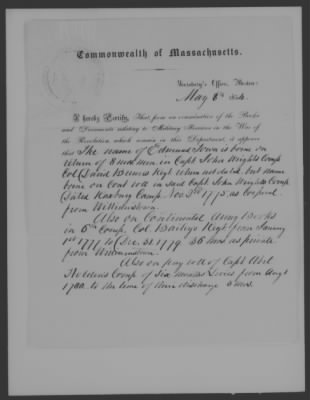 Commonwealth of Massachusetts.
Secretary's Office, Boston
May 8th
I hereby Certify, That from an examination of the Books
and Documents relating to Military Services in the War of
the Revolution, which remain in this Department, it appears
that The name of Edmund Town is borne on
return of 8 mos men, in Capt John Wright's Comp
Col David Regt when not dated, but name
borne on Coat roll in said Capt John Wright's Comp
dated Roxbury Camp Nov 3rd 1775 as Corporal
from
Also on Continental Army Books
in 6th Comp. Col. Bailey's Regt from January
1st 1777 to Dec. 31. 1779. 36 mos as private
from
Also on pay roll of Capt Abel
Holden's Comp of Six months Levies from Augt
1780 to the time of their discharge